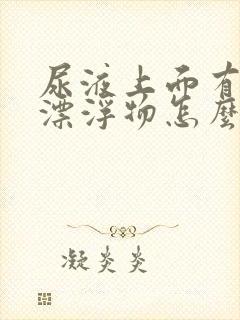 尿液上面有
漂浮物怎麼
凝炎炎